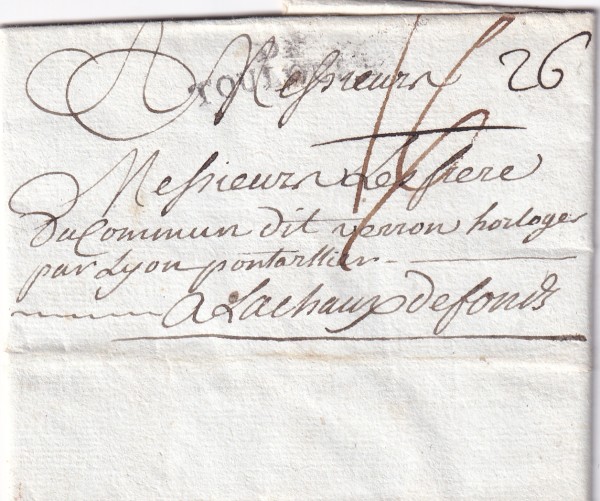 A Messieurs 26
TOULO
Messieurs Les frere
DuCommun dit verron horloger
par Lyon pontarllier
a Lachaux defonds